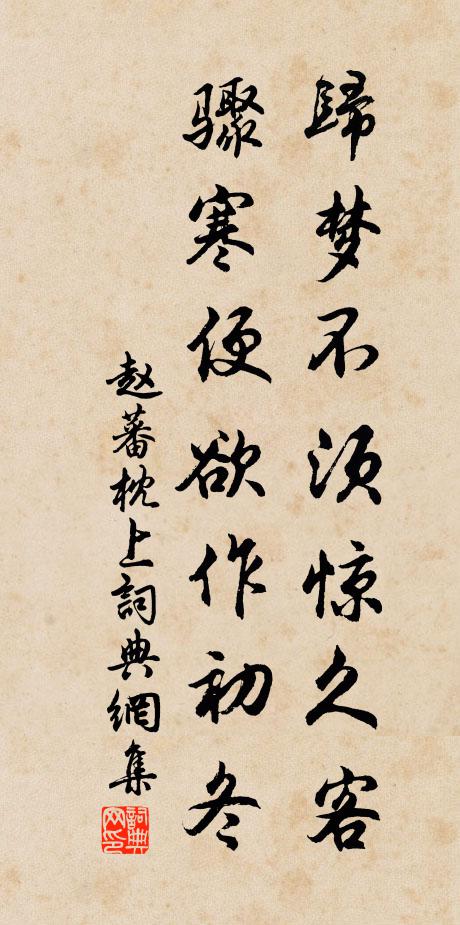 歸梦不须惊久客
骤寒便欲作初冬
赵蕃枕上詞典網集
詞典网印